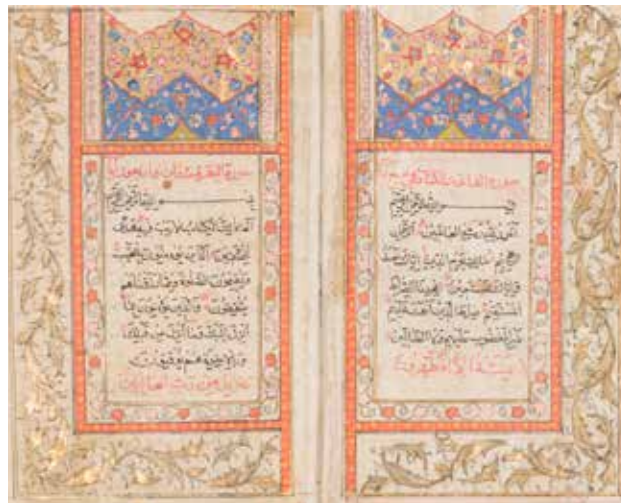 سورة الفاتحة
بسم الله الرحمن الرحيم
الحمد لله رب العالمين الرحمن
الرحيم مالك يوم الدين اياك نعبد
واياك نستعين اهدنا الصراط
المستقيم صراط الذين انعمت عليهم
غير المغضوب عليهم ولا الضالين
لا يمسه الا المطهرون
سورة البقرة
بسم الله الرحمن الرحيم
الم ذلك الكتاب لا ريب فيه هدى
للمتقين الذين يؤمنون بالغيب
ويقيمون الصلوة ومما رزقناهم
ينفقون والذين يؤمنون بما
انزل اليك وما انزل من قبلك
وبالاخرة هم يوقنون
تنزيل من رب العالمين